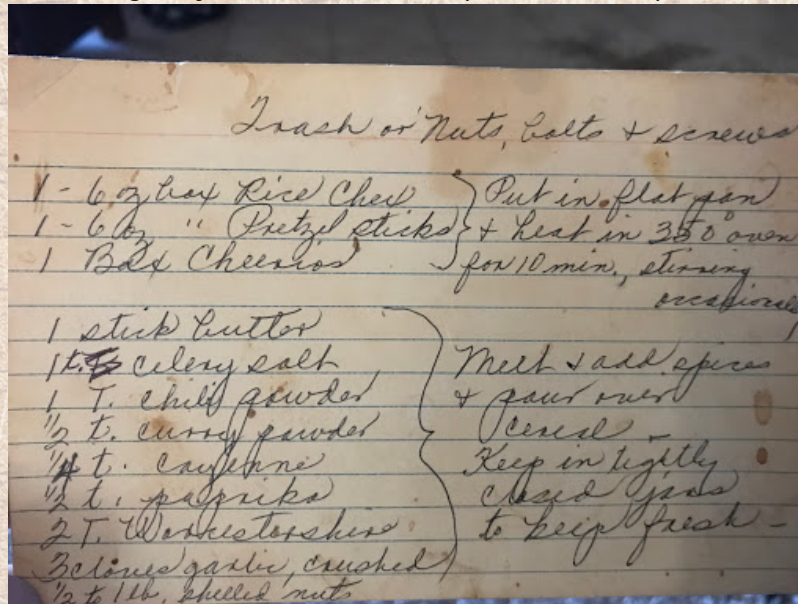 Trash or Nuts, bolts + screws
1 - 6 oz box Rice Chex
1 - 6 oz " Pretzel sticks
1 Box Cheerios
Put in flat pan
+ heat in 350° oven
for 10 min., stirring
occasionally
1 stick butter
1 t. celery salt
1 T. chili powder
1/2 t. curry powder
1/4 t. cayenne
1/2 t. paprika
2 T. Worcestershire
3 cloves garlic, crushed
1/2 to 1 lb. shelled nuts
Melt + add spices
+ pour over
cereal -
Keep in tightly
closed jars
to keep fresh -